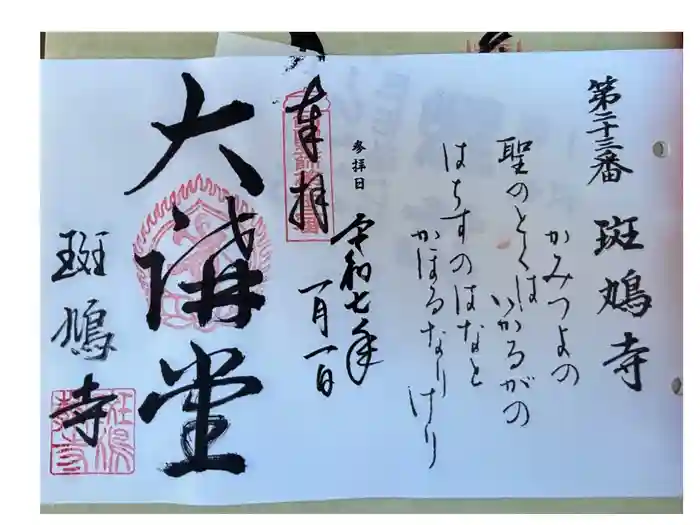 第二十三番 斑鳩寺
かみつよの
聖のとくは いかるがの
はちすのはなと
かほるなりけり
参拝日 令和七年
一月一日
奉拝
大講堂
斑鳩寺